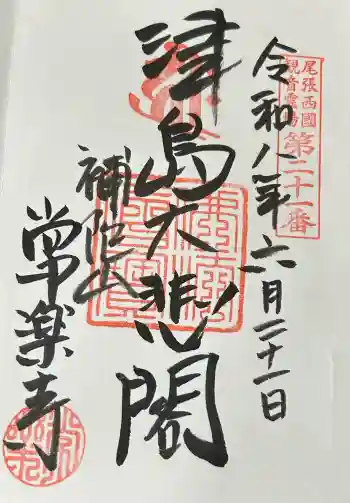 尾張西國
観音霊場
第二十一番
令和八年六月二十一日
津島大悲閣
補陀山
常楽寺